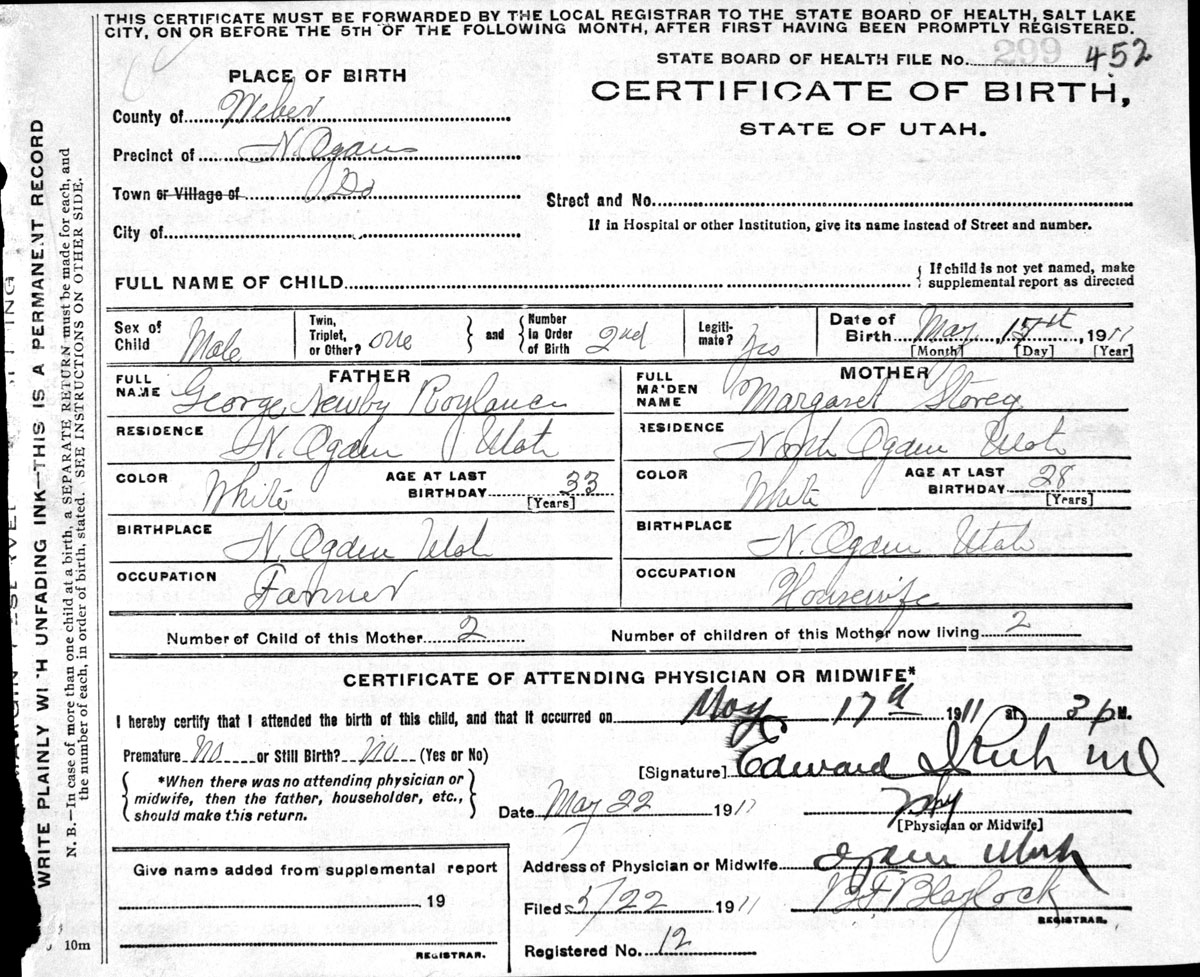 THIS CERTIFICATE MUST BE FORWARDED BY THE LOCAL REGISTRAR TO THE STATE BOARD OF HEALTH, SALT LAKE
CITY, ON OR BEFORE THE 5TH OF THE FOLLOWING MONTH, AFTER FIRST HAVING BEEN PROMPTLY REGISTERED.
STATE BOARD OF HEALTH FILE No. 299 452
PLACE OF BIRTH
CERTIFICATE OF BIRTH,
STATE OF UTAH.
County of Weber
Precinct of N. Ogden
Town or Village of Do
Street and No.
City of
If in Hospital or other Institution, give its name instead of Street and number.
FULL NAME OF CHILD
If child is not yet named, make
supplemental report as directed
Sex of Child Male Twin, Triplet, or Other? one and Number in Order of Birth 2nd Legiti- mate? Yes Date of Birth May 17th, 1911
[Month] [Day] [Year]
FATHER
MOTHER
FULL NAME George Newby Roylance
FULL MAIDEN NAME Margaret Storey
RESIDENCE N. Ogden Utah
RESIDENCE North Ogden Utah
COLOR White AGE AT LAST BIRTHDAY 33 [Years]
COLOR White AGE AT LAST BIRTHDAY 28 [Years]
BIRTHPLACE N. Ogden Utah
BIRTHPLACE N. Ogden Utah
OCCUPATION Farmer
OCCUPATION Housewife
Number of Child of this Mother 2 Number of children of this Mother now living 2
CERTIFICATE OF ATTENDING PHYSICIAN OR MIDWIFE*
I hereby certify that I attended the birth of this child, and that it occurred on May 17th 1911 at 3 p M.
Premature No or Still Birth? No (Yes or No)
*When there was no attending physician or
midwife, then the father, householder, etc.,
should make this return.
[Signature] Edward I Rich MD
Date May 22 1911 Phy
[Physician or Midwife]
Give name added from supplemental report
19
REGISTRAR.
Address of Physician or Midwife Ogden Utah
Filed 5/22 1911 B.F. Blaylock
REGISTRAR.
Registered No. 12
10m
WRITE PLAINLY WITH UNFADING INK—THIS IS A PERMANENT RECORD
N. B.—In case of more than one child at a birth, a SEPARATE RETURN must be made for each, and
the number of each, in order of birth, stated. SEE INSTRUCTIONS ON OTHER SIDE.